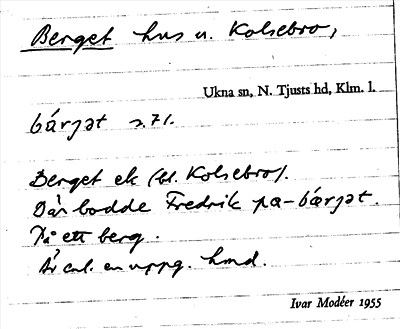 Berget hus u. Kolsebro,
Ukna sn, N. Tjusts hd, Klm. l.
bárjət s. 71.
Berget ek (bl. Kolsebro).
Där bodde Fredrik pa-bárjət.
På ett berg.
Är enl. en uppg. hmd.
Ivar Modéer 1955